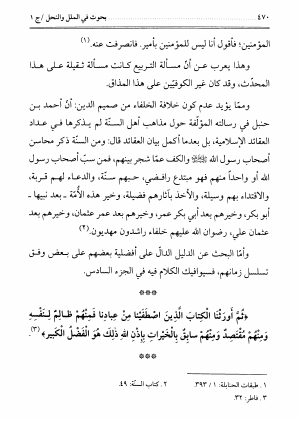 ٤٧٠ بحوث في الملل والنحل /ج ١
المؤمنين؛ فأقول أنا ليس للمؤمنين بأمير. فانصرفت عنه. (١)
وهذا يعرب عن أنّ مسألة التربيع كانت مسألة ثقيلة على هذا
المحدّث، وقد كان غير الكوفيّين على هذا المذاق.
وممّا يؤيد عدم كون خلافة الخلفاء من صميم الدين: أنّ أحمد بن
حنبل في رسالته المؤلّفة حول مذاهب أهل السنّة لم يذكرها في عداد
العقائد الإسلامية، بل بعدما أكمل بيان العقائد قال: ومن السنّة ذكر محاسن
أصحاب رسول الله ﷺ والكف عمّا شجر بينهم، فمن سبّ أصحاب رسول
الله أو واحداً منهم فهو مبتدع رافضي، حبهم سنّة، والدعاء لهم قربة،
والاقتداء بهم وسيلة، والأخذ بآثارهم فضيلة، وخير هذه الأُمّة ـ بعد نبيها ـ
أبو بكر، وخيرهم بعد أبي بكر عمر، وخيرهم بعد عمر عثمان، وخيرهم بعد
عثمان علي، رضوان الله عليهم خلفاء راشدون مهديون. (٢)
وأمّا البحث عن الدليل الدالّ على أفضلية بعضهم على بعض وفق
تسلسل زمانهم، فسيوافيك الكلام فيه في الجزء السادس.
***
﴿ثُمَّ أَوْرَثْنَا الْكِتَابَ الَّذِينَ اصْطَفَيْنَا مِنْ عِبادِنا فَمِنْهُمْ ظالِمٌ لِنَفْسِهِ
وَمِنْهُمْ مُقْتَصِدٌ وَمِنْهُمْ سابِقٌ بِالْخَيْراتِ بِإِذْنِ اللهِ ذلِكَ هُوَ الْفَضْلُ الْكَبِير﴾ (٣).
***
١. طبقات الحنابلة: ١ / ٣٩٣. ٢. كتاب السنّة: ٤٩.
٣. فاطر: ٣٢.